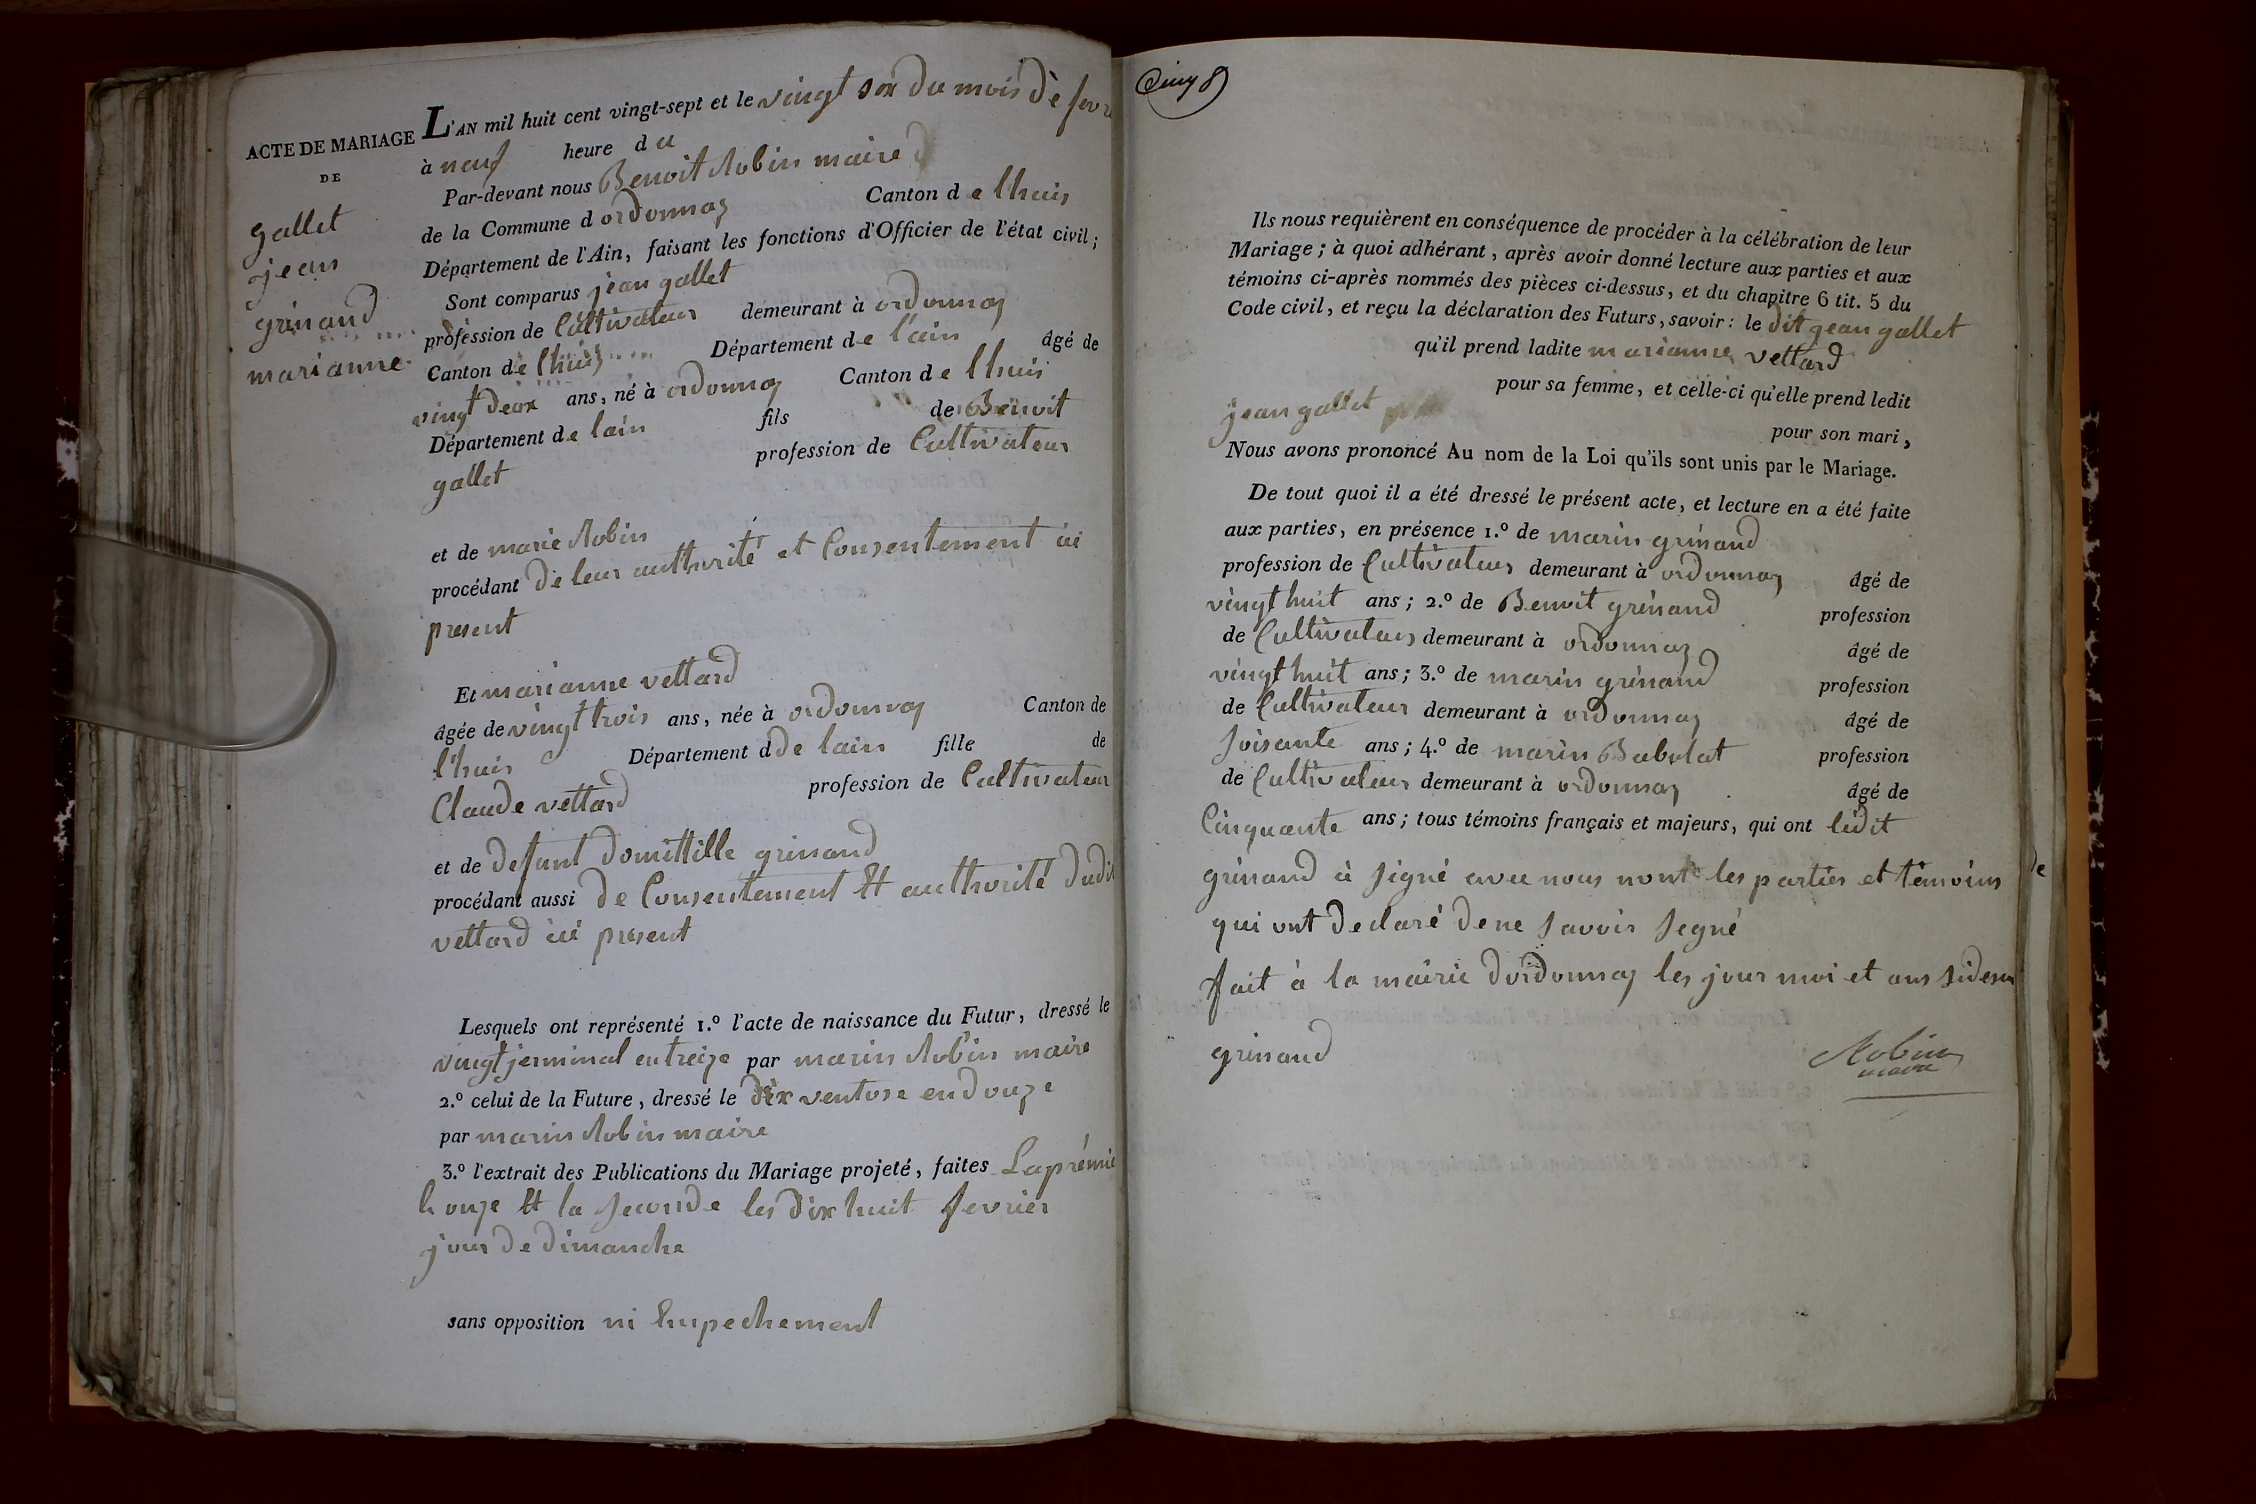 L'AN mil huit cent vingt-sept et le vingt six du mois de fevr
ACTE DE MARIAGE
DE
gallet
jean
grinand
marianne
à neuf heure du
Par-devant nous Benoit Robin maire d
de la Commune d ordonnaz Canton de lhuis
Département de l'Ain, faisant les fonctions d'Officier de l'état civil;
Sont comparus jean gallet
profession de Cultivateur demeurant à ordonnaz
Canton de lhuis Département de l'ain âgé de
vingt deux ans, né à ordonnaz Canton de lhuis
Département de lain fils de Benoit
gallet profession de Cultivateur
et de marie Robin
procédant de leur authorité et Consentement ici
present
Et marianne vettard
âgée de vingt trois ans, née à ordonnaz Canton de
l'huis Département d de lain fille de
Claude vettard profession de Cultivateur
et de defunt domittille grinand
procédant aussi de Consentement Et authorité dudi
vettard ici present
Lesquels ont représenté 1.º l'acte de naissance du Futur, dressé le
vingt jerminal en treize par marin Robin maire
2.º celui de la Future, dressé le dix ventose en douze
par marin Robin maire
3.º l'extrait des Publications du Mariage projeté, faites La prémie
le onze Et la seconde les dix huit fevrier
jour de dimanche
sans opposition ni Empechement
Ils nous requièrent en conséquence de procéder à la célébration de leur
Mariage; à quoi adhérant, après avoir donné lecture aux parties et aux
témoins ci-après nommés des pièces ci-dessus, et du chapitre 6 tit. 5 du
Code civil, et reçu la déclaration des Futurs, savoir: le dit jean gallet
qu'il prend ladite marianne vettard
pour sa femme, et celle-ci qu'elle prend ledit
jean gallet pour son mari,
Nous avons prononcé Au nom de la Loi qu'ils sont unis par le Mariage.
De tout quoi il a été dressé le présent acte, et lecture en a été faite
aux parties, en présence 1.º de marin grinand
profession de Cultivateur demeurant à ordonnaz âgé de
vingt huit ans; 2.º de Benoit grinand profession
de Cultivateur demeurant à ordonnaz âgé de
vingt huit ans; 3.º de marin grinand profession
de Cultivateur demeurant à ordonnaz âgé de
soisante ans; 4.º de marin Babolat profession
de Cultivateur demeurant à ordonnaz âgé de
Cinquante ans; tous témoins français et majeurs, qui ont ledit
grinand à signé avec nous nont les parties et témoins de
qui ont declaré de ne savoir segné
fait à la mairie dordonnaz les jour moi et ans sidesu
grinand
Robin
maire